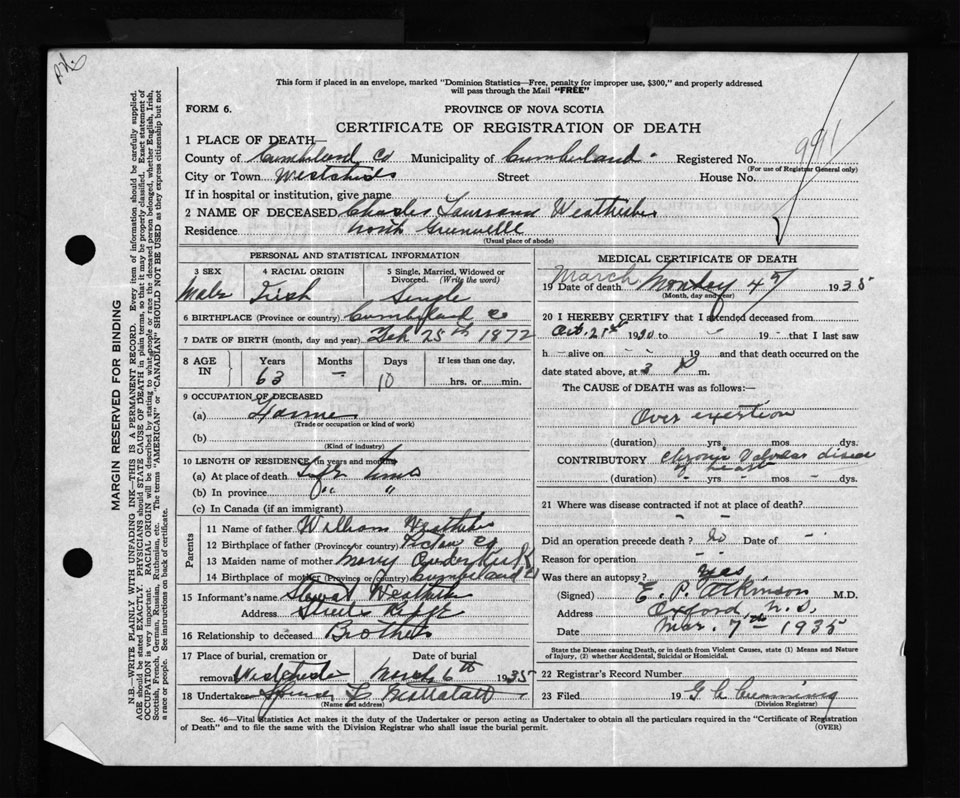 This form if placed in an envelope, marked "Dominion Statistics—Free, penalty for improper use, $300," and properly addressed
will pass through the Mail "FREE"
FORM 6.
PROVINCE OF NOVA SCOTIA
CERTIFICATE OF REGISTRATION OF DEATH
991
1 PLACE OF DEATH—
County of Cumberland Co Municipality of Cumberland Registered No.
(For use of Registrar General only)
City or Town Street House No.
If in hospital or institution, give name
2 NAME OF DECEASED Charles
Residence North
(Usual place of abode)
PERSONAL AND STATISTICAL INFORMATION
3 SEX
4 RACIAL ORIGIN
5 Single, Married, Widowed or
Divorced. (Write the word)
Male Irish Single
6 BIRTHPLACE (Province or country) Cumberland Co
7 DATE OF BIRTH (month, day and year) Feb 25th 1872
8 AGE IN
Years Months Days If less than one day,
63 — 10 hrs. or min.
9 OCCUPATION OF DECEASED
(a)
(Trade or occupation or kind of work)
(b)
(Kind of industry)
10 LENGTH OF RESIDENCE (in years and months)
(a) At place of death
(b) In province " "
(c) In Canada (if an immigrant)
Parents
11 Name of father William
12 Birthplace of father (Province or country) Pictou Co
13 Maiden name of mother Mary
14 Birthplace of mother (Province or country) Cumberland
15 Informant's name
Address
16 Relationship to deceased Brother
17 Place of burial, cremation or
removal
Date of burial
March 6th 1935
18 Undertaker
(Name and address)
MEDICAL CERTIFICATE OF DEATH
19 Date of death March Monday 4th 1935
(Month, day and year)
20 I HEREBY CERTIFY that I attended deceased from
Oct. 21st 1930 to 19 that I last saw
h alive on 19 and that death occurred on the
date stated above, at 3 P m.
The CAUSE of DEATH was as follows:—
Over exertion
(duration) yrs. mos. dys.
CONTRIBUTORY Chronic Valvular disease
of heart
(duration) yrs. mos. dys.
21 Where was disease contracted if not at place of death?
Did an operation precede death? no Date of
Reason for operation
Was there an autopsy?
(Signed) E. P. Atkinson M.D.
Address Oxford, N.S.
Date Mar. 7th 1935
State the Disease causing Death, or in death from Violent Causes, state (1) Means and Nature
of Injury, (2) whether Accidental, Suicidal or Homicidal.
22 Registrar's Record Number
23 Filed 19
(Division Registrar)
Sec. 46—Vital Statistics Act makes it the duty of the Undertaker or person acting as Undertaker to obtain all the particulars required in the "Certificate of Registration
of Death" and to file the same with the Division Registrar who shall issue the burial permit.
(OVER)
MARGIN RESERVED FOR BINDING
N.B.—WRITE PLAINLY WITH UNFADING INK—THIS IS A PERMANENT RECORD. Every item of information should be carefully supplied.
AGE should be stated EXACTLY. PHYSICIANS should STATE CAUSE OF DEATH in plain terms, so that it may be properly classified. Exact statement of
OCCUPATION is very important. RACIAL ORIGIN will be described by stating to what people or race the deceased person belonged, whether English, Irish,
Scottish, French, German, Russian, Ruthenian, etc. The terms "AMERICAN" or "CANADIAN" SHOULD NOT BE USED as they express citizenship but not
a race or people. See instructions on back of certificate.